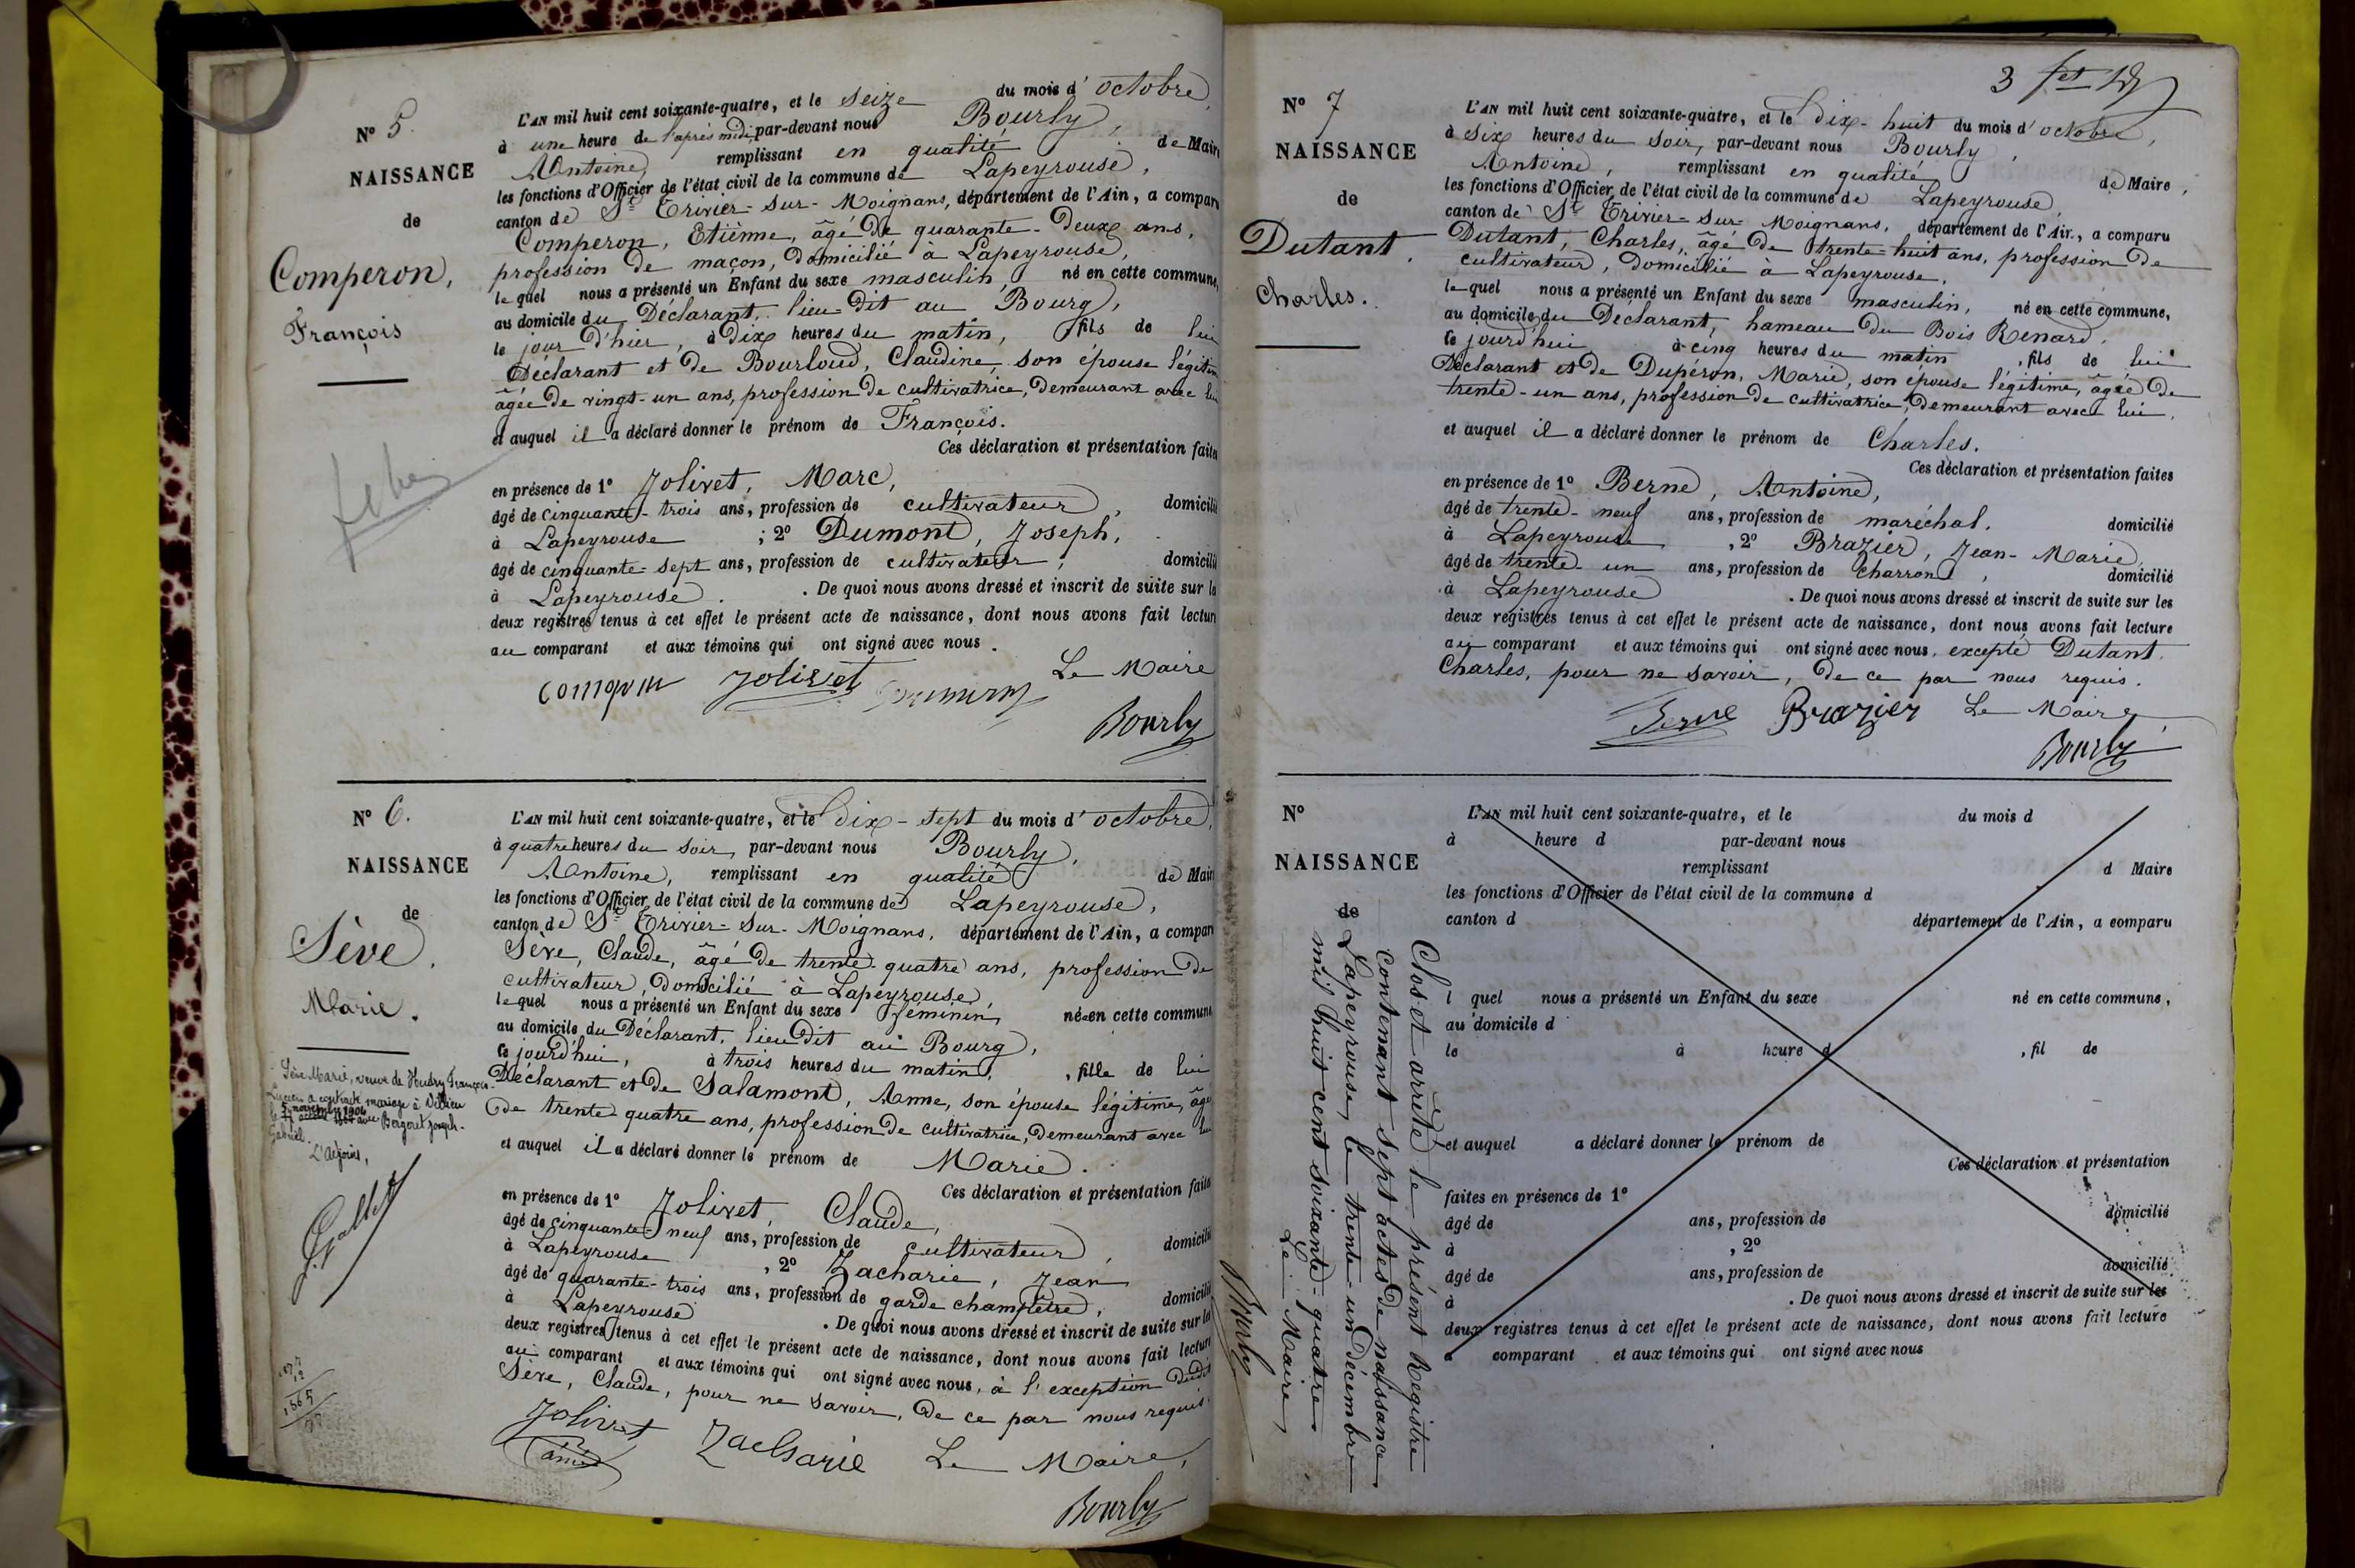 N° 5.
NAISSANCE
de
Comperon,
François
L'AN mil huit cent soixante-quatre, et le seize du mois d'octobre,
à une heure de l'après midi, par-devant nous Bourly,
Antoine, remplissant en qualité de Maire
les fonctions d'Officier de l'état civil de la commune de Lapeyrouse,
canton de St Trivier-sur-Moignans, département de l'Ain, a comparu
Comperon, Etiènne, âgé de quarante-deux ans,
profession de maçon, domicilié à Lapeyrouse,
lequel nous a présenté un Enfant du sexe masculin, né en cette commune,
au domicile du Déclarant, lieu dit au Bourg,
le jour d'hier, à dix heures du matin, fils de lui
Déclarant et de Bourloud, Claudine, son épouse légitime
âgée de vingt-un ans, profession de cultivatrice, demeurant avec lui
et auquel il a déclaré donner le prénom de François.
Ces déclaration et présentation faites
en présence de 1° Jolivet, Marc,
âgé de cinquante-trois ans, profession de cultivateur, domicilié
à Lapeyrouse ; 2° Dumont, Joseph,
âgé de cinquante-sept ans, profession de cultivateur, domicilié
à Lapeyrouse. De quoi nous avons dressé et inscrit de suite sur le
deux registres tenus à cet effet le présent acte de naissance, dont nous avons fait lecture
au comparant et aux témoins qui ont signé avec nous.
Jolivet Le Maire
Bourly
N° 6.
NAISSANCE
de
Sève,
Marie.
Sève Marie, veuve de Heudry François-
Lucien a contracté mariage à Villieu
le 5 novembre 1904 avec Bergeret Joseph-
Gabriel.
L'Adjoint,
L'AN mil huit cent soixante-quatre, et le dix-sept du mois d'octobre,
à quatre heures du soir, par-devant nous Bourly,
Antoine, remplissant en qualité de Maire
les fonctions d'Officier de l'état civil de la commune de Lapeyrouse,
canton de St Trivier-sur-Moignans, département de l'Ain, a comparu
Sève, Claude, âgé de trente-quatre ans, profession de
cultivateur, domicilié à Lapeyrouse,
lequel nous a présenté un Enfant du sexe féminin, née en cette commune
au domicile du Déclarant, lieu dit au Bourg,
ce jourd'hui, à trois heures du matin, fille de lui
Déclarant et de Salamond, Anne, son épouse légitime, âgée
de trente-quatre ans, profession de cultivatrice, demeurant avec lui
et auquel il a déclaré donner le prénom de Marie.
Ces déclaration et présentation faites
en présence de 1° Jolivet, Claude,
âgé de cinquante-neuf ans, profession de cultivateur, domicilié
à Lapeyrouse, 2° Zacharie, Jean
âgé de quarante-trois ans, profession de garde champêtre, domicilié
à Lapeyrouse. De quoi nous avons dressé et inscrit de suite sur les
deux registres tenus à cet effet le présent acte de naissance, dont nous avons fait lecture
au comparant et aux témoins qui ont signé avec nous, à l'exception dudit
Sève, Claude, pour ne savoir, de ce par nous requis.
Jolivet Zacharie Le Maire,
Bourly
N° 7
NAISSANCE
de
Dutant,
Charles.
L'AN mil huit cent soixante-quatre, et le dix-huit du mois d'octobre,
à six heures du soir, par-devant nous Bourly,
Antoine, remplissant en qualité de Maire,
les fonctions d'Officier de l'état civil de la commune de Lapeyrouse,
canton de St Trivier-sur-Moignans, département de l'Ain, a comparu
Dutant, Charles, âgé de trente-huit ans, profession de
cultivateur, domicilié à Lapeyrouse,
lequel nous a présenté un Enfant du sexe masculin, né en cette commune,
au domicile du Déclarant, hameau du Bois Renard,
ce jourd'hui à cinq heures du matin, fils de lui
Déclarant et de Duperon, Marie, son épouse légitime, âgée de
trente-un ans, profession de cultivatrice, demeurant avec lui,
et auquel il a déclaré donner le prénom de Charles.
Ces déclaration et présentation faites
en présence de 1° Berne, Antoine,
âgé de trente-neuf ans, profession de maréchal, domicilié
à Lapeyrouse, 2° Brazier, Jean-Marie,
âgé de trente-un ans, profession de charron, domicilié
à Lapeyrouse. De quoi nous avons dressé et inscrit de suite sur les
deux registres tenus à cet effet le présent acte de naissance, dont nous avons fait lecture
au comparant et aux témoins qui ont signé avec nous, excepté Dutant,
Charles, pour ne savoir, de ce par nous requis.
Berne Brazier Le Maire,
Bourly
N°
NAISSANCE
de
Clos et arrêté le présent Registre
contenant sept actes de naissance
Lapeyrouse, le trente-un décembre
mil huit cent soixante-quatre
Le Maire,
Bourly
L'AN mil huit cent soixante-quatre, et le du mois d
à heure d par-devant nous
remplissant d Maire
les fonctions d'Officier de l'état civil de la commune d
canton d département de l'Ain, a comparu
l quel nous a présenté un Enfant du sexe né en cette commune,
au domicile d
le à heure d , fil de
et auquel a déclaré donner le prénom de
Ces déclaration et présentation
faites en présence de 1°
âgé de ans, profession de domicilié
à , 2°
âgé de ans, profession de domicilié
à . De quoi nous avons dressé et inscrit de suite sur les
deux registres tenus à cet effet le présent acte de naissance, dont nous avons fait lecture
a comparant et aux témoins qui ont signé avec nous